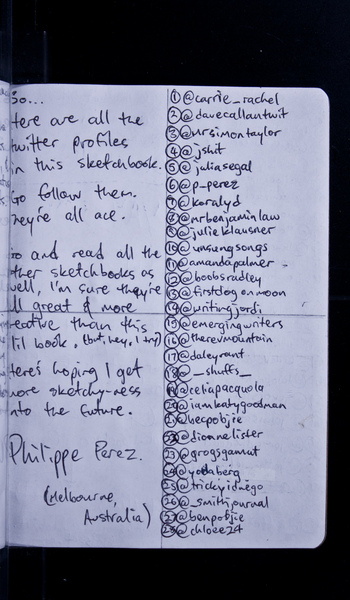 So...
Here are all the
twitter profiles
in this sketchbook.
Go follow them.
They're all ace.
Go and read all the
other sketchbooks as
well, I'm sure they're
all great & more
creative than this
lil book, (but, hey, I try)
Here's hoping I get
more sketchy-ness
into the future.
Philippe Perez.
(Melbourne,
Australia)
1 @carrie_rachel
2 @davecallantwit
3 @mrsimontaylor
4 @jshit
5 @juliasegal
6 @p_perez
7 @koralyd
8 @mrbenjaminlaw
9 @julieklausner
10 @unsungsongs
11 @amandapalmer
12 @boobsradley
13 @firstdogonmoon
14 @writingjordi
15 @emergingwriters
16 @therevmountain
17 @daleyrant
18 @_shuffs_
19 @celiapacquola
20 @iamkatygoodman
21 @becpobjie
22 @dionnelister
23 @grogsgamut
24 @yodaberg
25 @trickyidnego
26 @_smithjournal
27 @benpobjie
28 @chloee24